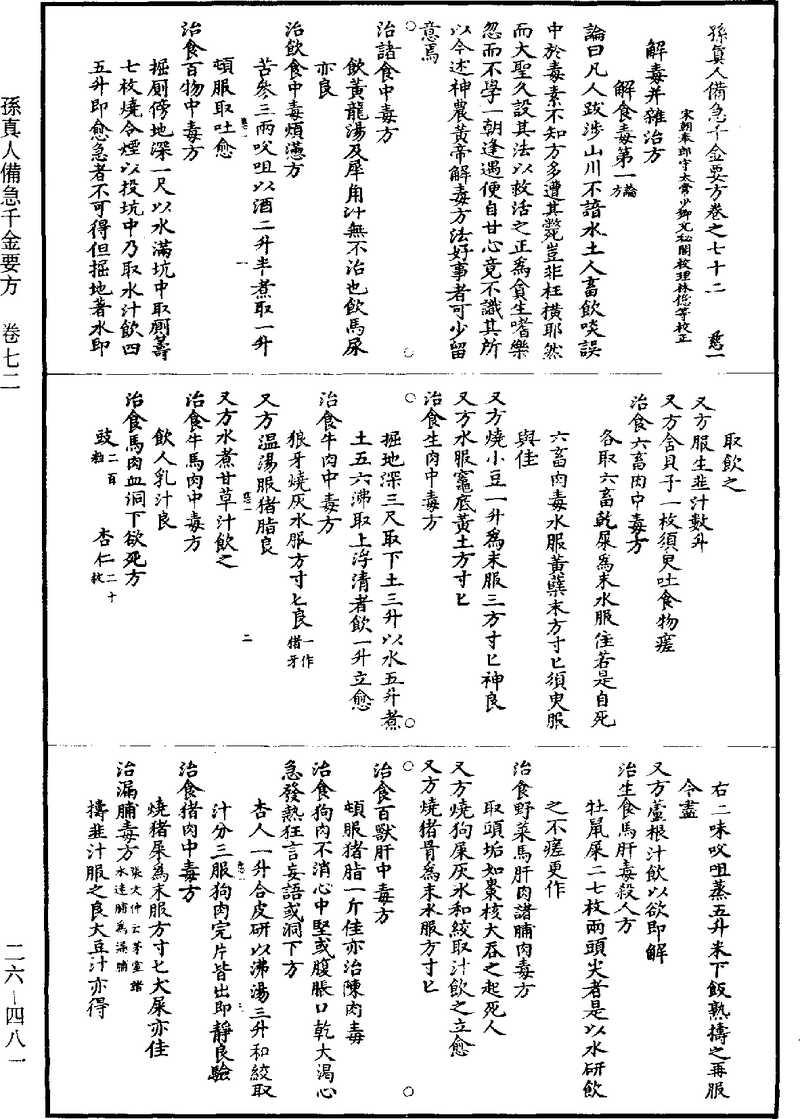 孫真人備急千金要方卷之七十二 惷一
宋朝奉郎守太常少卿充秘閣校理林億等校正
解毒并雜治方
解食毒第一 論 方
論曰凡人跋涉山川不諳水土人畜飲啖誤
中於毒素不知方多遭其斃豈非枉橫耶然
而大聖久設其法以救活之正為貪生嗜樂
忽而不學一朝逢遇便自甘心竟不識其所
以今述神農黃帝解毒方法好事者可少留
意焉
治諸食中毒方
飲黃龍湯及犀角汁無不治也飲馬尿
亦良
治飲食中毒煩懣方
苦參三兩㕮咀以酒二升半煮取一升
頓服取吐愈
治食百物中毒方
掘厠傍地深一尺以水滿坑中取厠籌
七枚燒令煙以投坑中乃取水汁飲四
五升即愈急者不可得但掘地著水即
取飲之
又方服生韭汁數升
又方含貝子一枚須臾吐食物瘥
治食六畜肉中毒方
各取六畜乾屎為末水服佳若是自死
六畜肉毒水服黃蘗末方寸匕須臾服
與佳
又方燒小豆一升為末服三方寸匕神良
又方水服竈底黃土方寸匕
治食生肉中毒方
掘地深三尺取下土三升以水五升煮
土五六沸取上浮清者飲一升立愈
治食牛肉中毒方
狼牙燒灰水服方寸匕良 一作 猪牙
又方溫湯服猪脂良
又方水煮甘草汁飲之
治食牛馬肉中毒方
飲人乳汁良
治食馬肉血洞下欲死方
豉 二百 粒 杏仁 二十 枚
右二味㕮咀蒸五升米下飯熟擣之再服
令盡
又方蘆根汁飲以欲即解
治生食馬肝毒殺人方
牡鼠屎二七枚兩頭尖者是以水研飲
之不瘥更作
治食野菜馬肝肉諸脯肉毒方
取頭垢如棗核大吞之起死人
又方燒狗屎灰水和絞取汁飲之立愈
又方燒猪骨為末水服方寸匕
治食百獸肝中毒方
頓服猪脂一斤佳亦治陳肉毒
治食狗肉不消心中堅或腹脹口乾大渴心
急發熱狂言妄語或洞下方
杏人一升合皮研以沸湯三升和絞取
汁分三服狗肉完片皆出即靜良驗
治食猪肉中毒方
燒猪屎為末服方寸七犬屎亦佳
治漏脯毒方 張文仲云茅室諸 水連脯為漏脯
擣韭汁服之良大豆汁亦得
孫真人備急千金要方 卷七二
二六—四八一